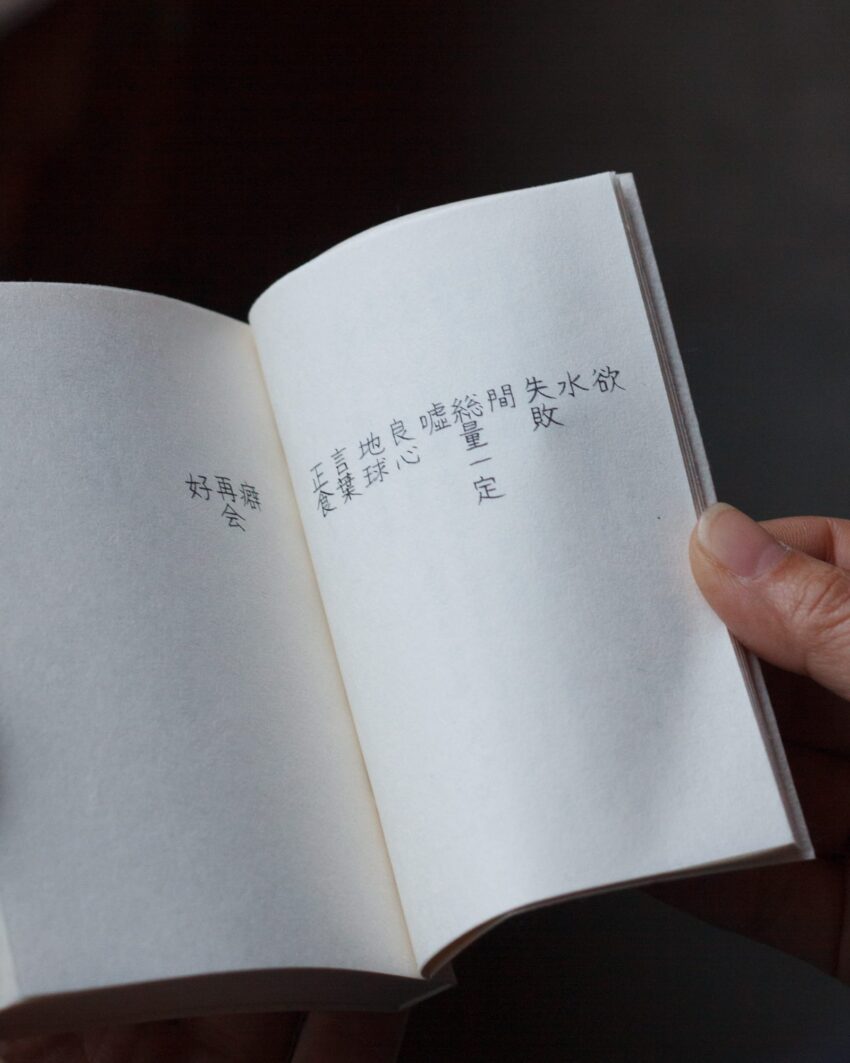 欲
水
失敗
間
嘘
総量一定
良心
地球
言葉
正食
癖
再会
好